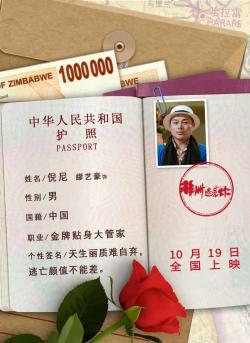 哈拉雷
HARARE
OF ZIMBABWE 1000000
中华人民共和国
护 照
PASSPORT
姓名/倪尼 缪艺豪饰
性别/男
国籍/中国
职业/金牌贴身大管家
个性签名/天生丽质难自弃，
逃亡颜值不能差。
10月19日
全国上映